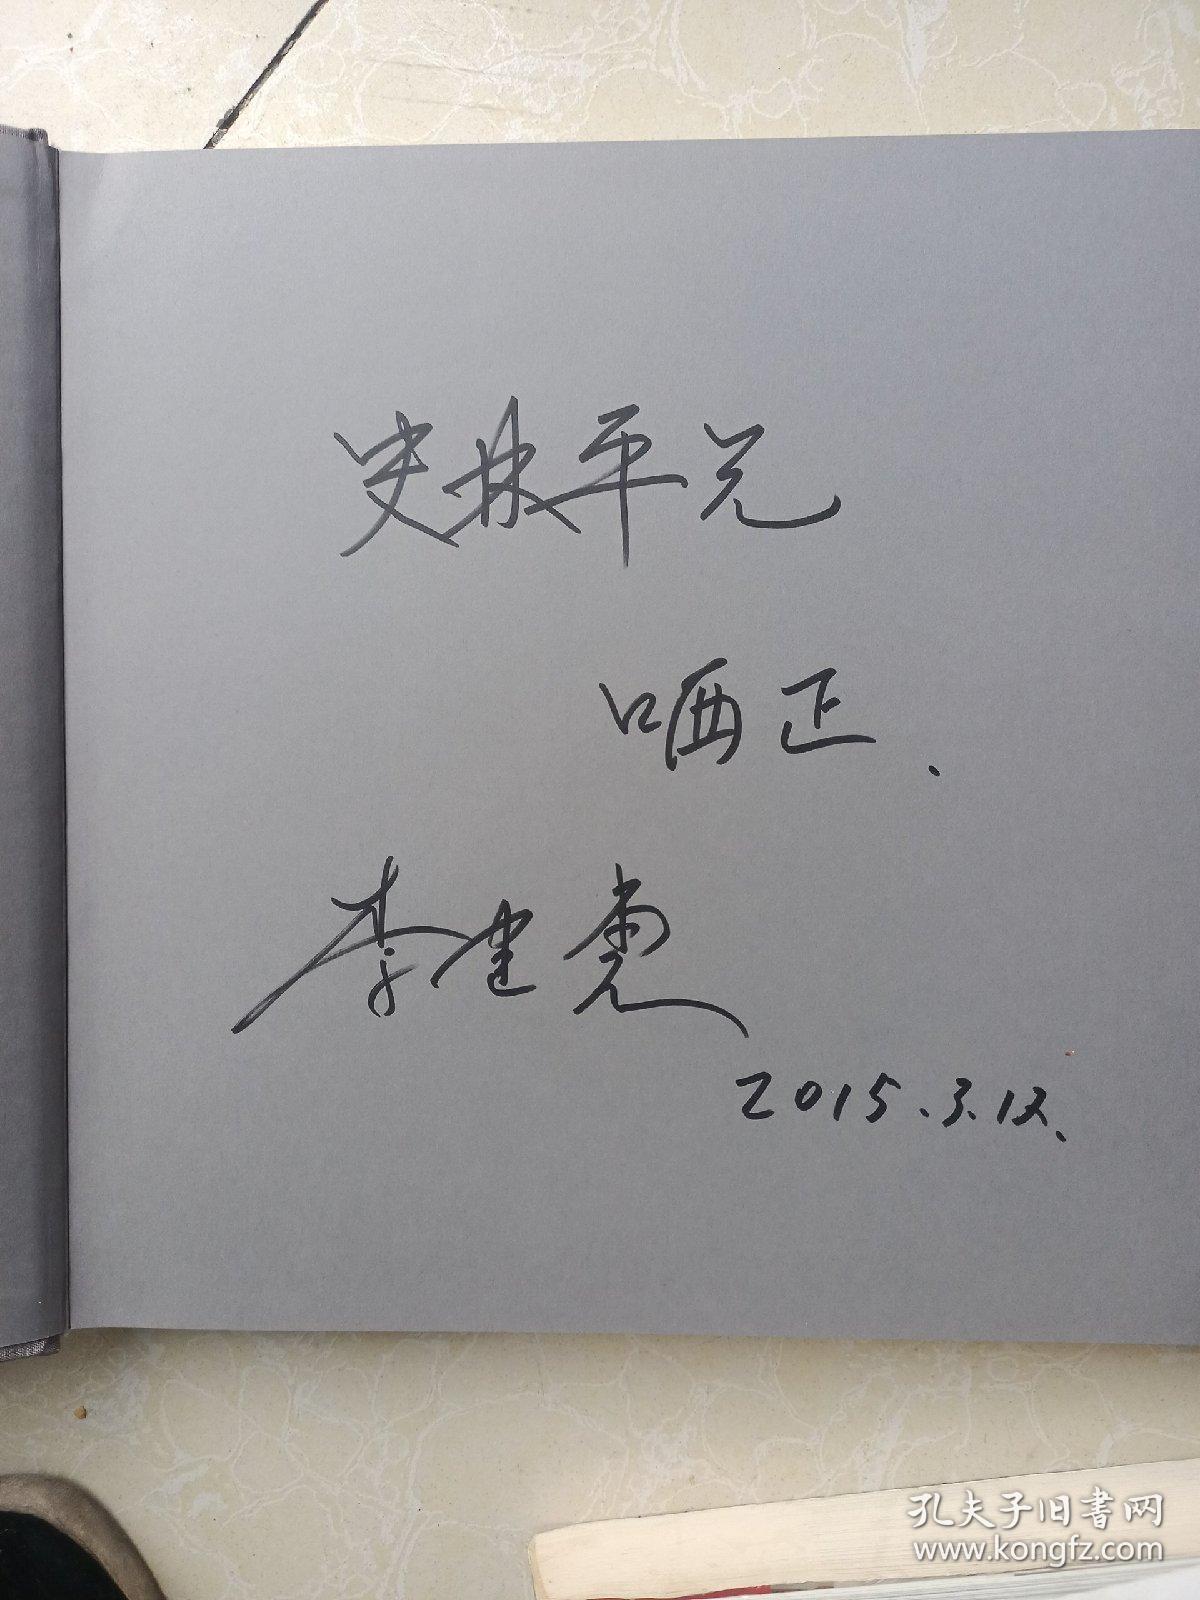 史林平兄
哂正、
李建
2015.3.12、
孔夫子旧书网
www.kongfz.com